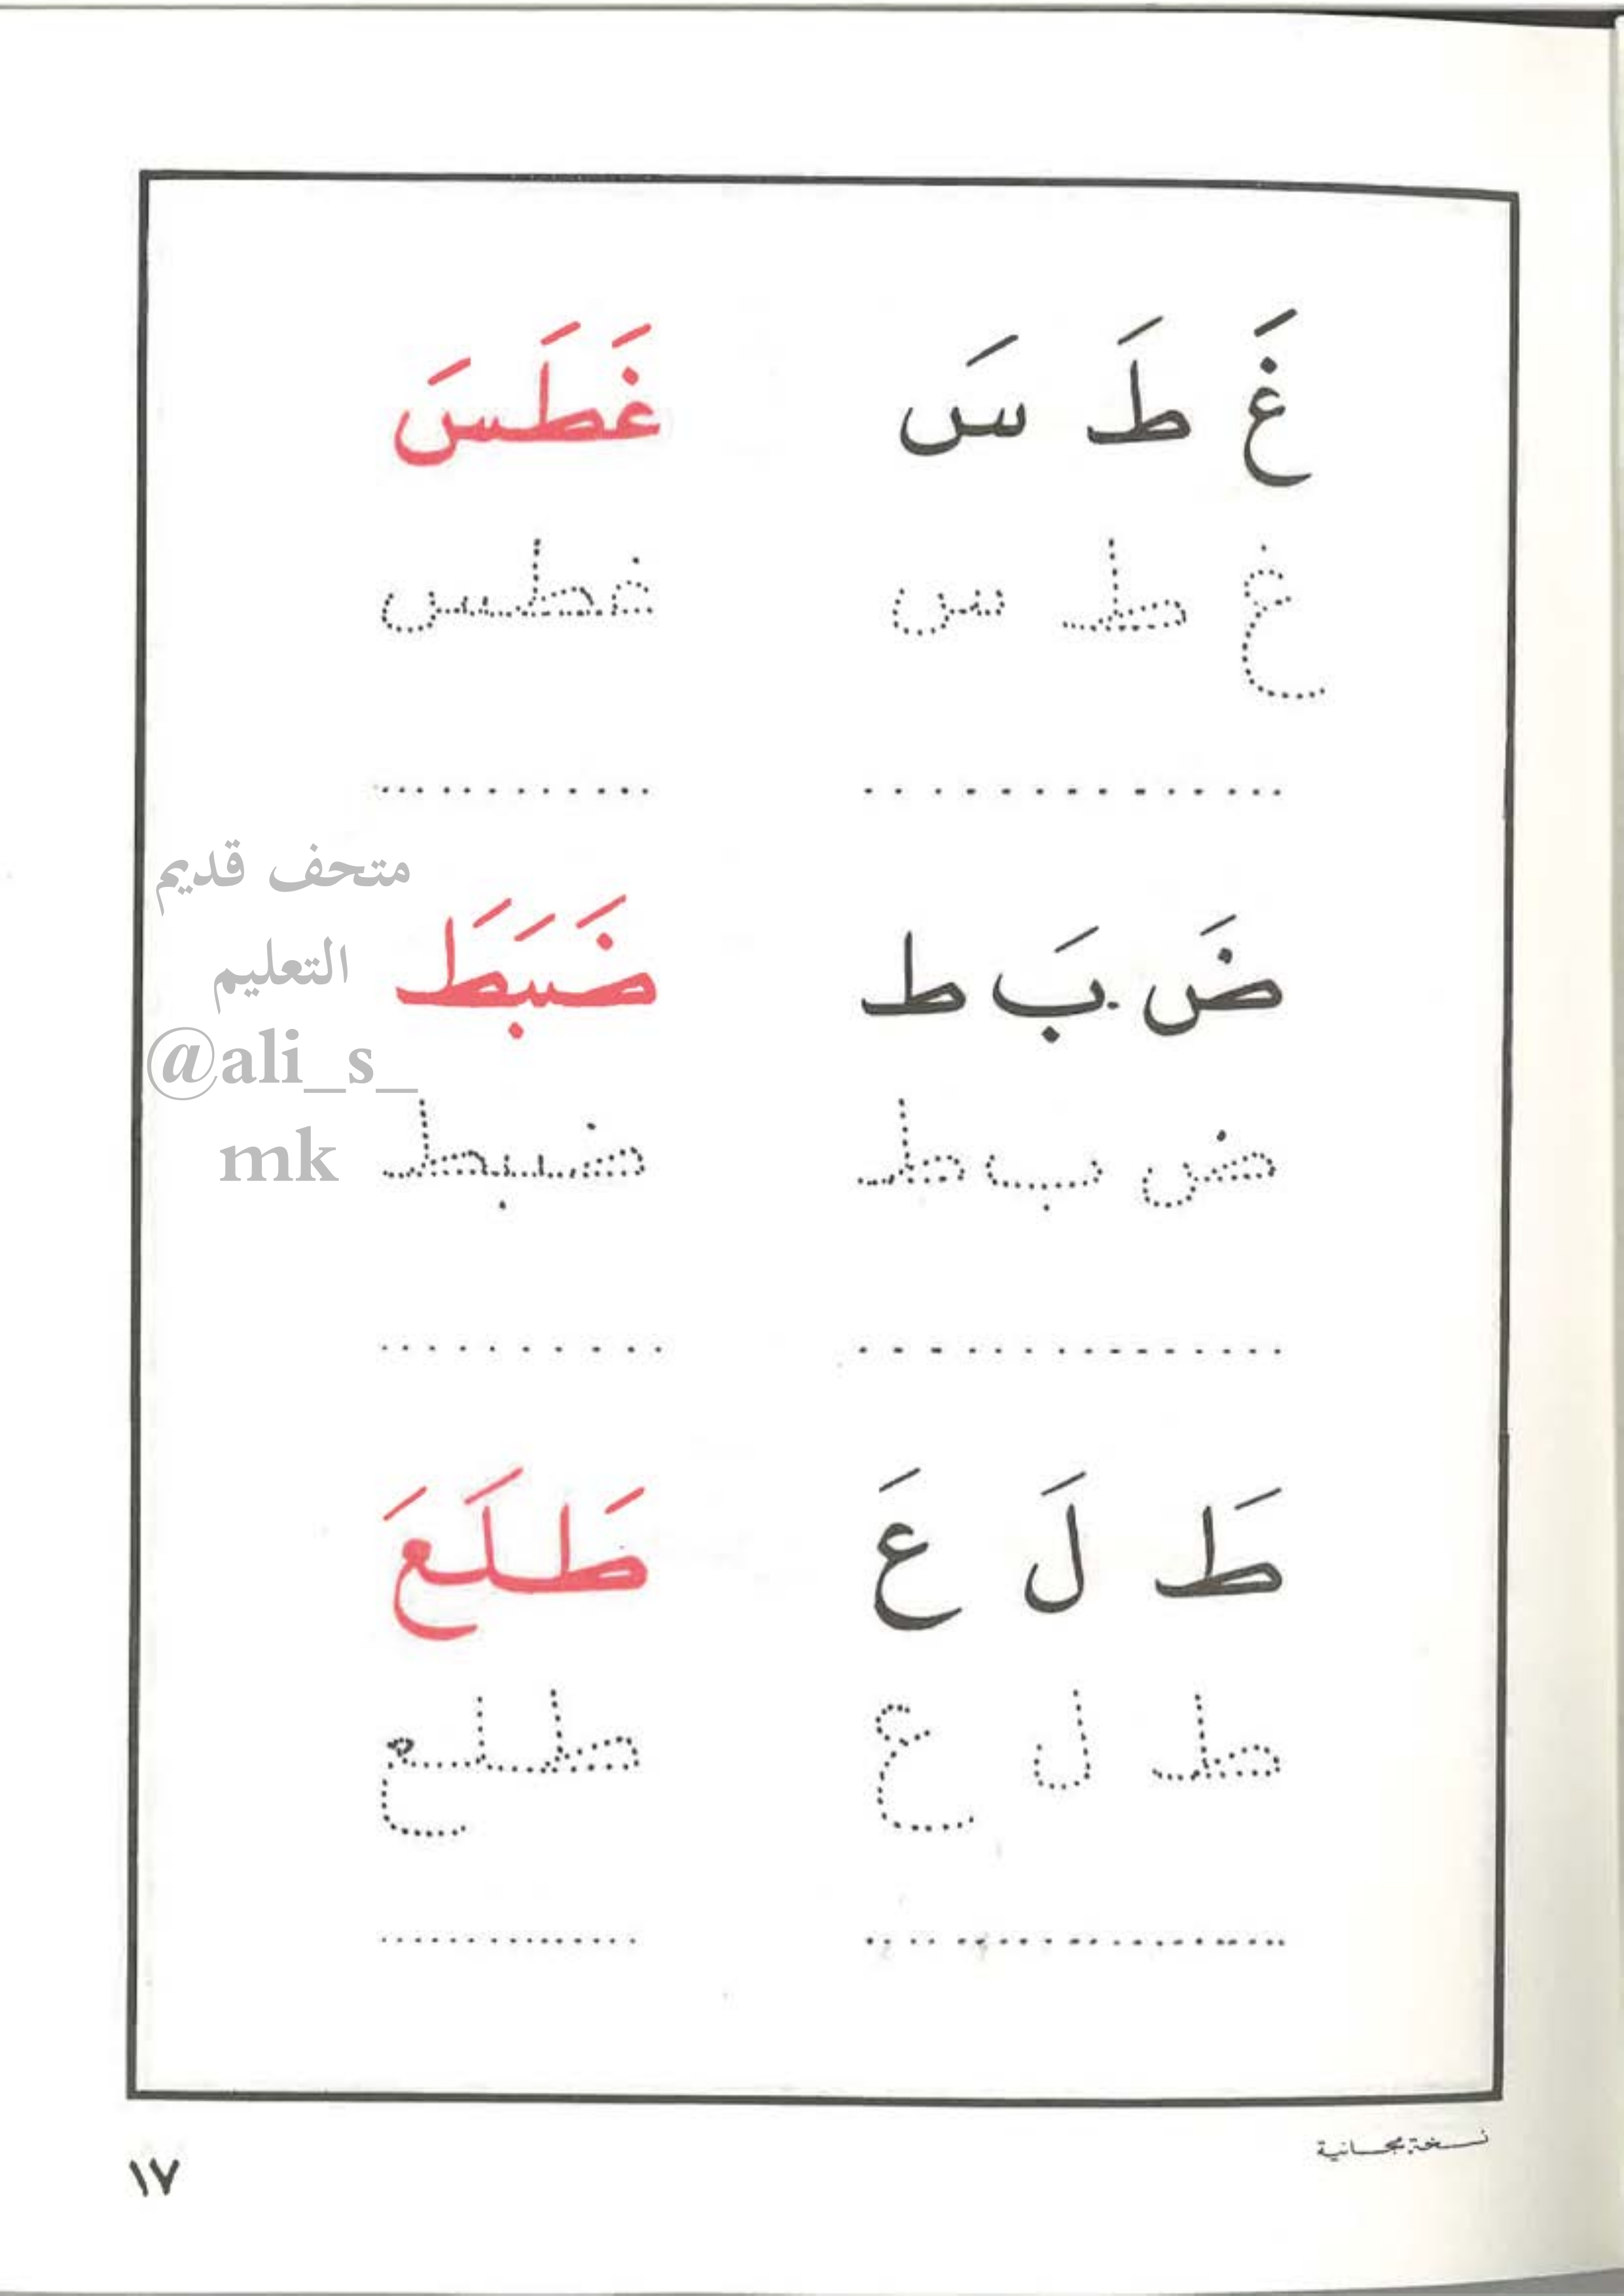 غَ طَ سَ غَطَسَ
غ ط س غطس
ضَ بَ ط ضَبَطَ
ض ب ط ضبط
طَ لَ عَ طَلَعَ
ط ل ع طلع
متحف قديم
التعليم
@ali_s_
mk
نسخة مجانية
١٧